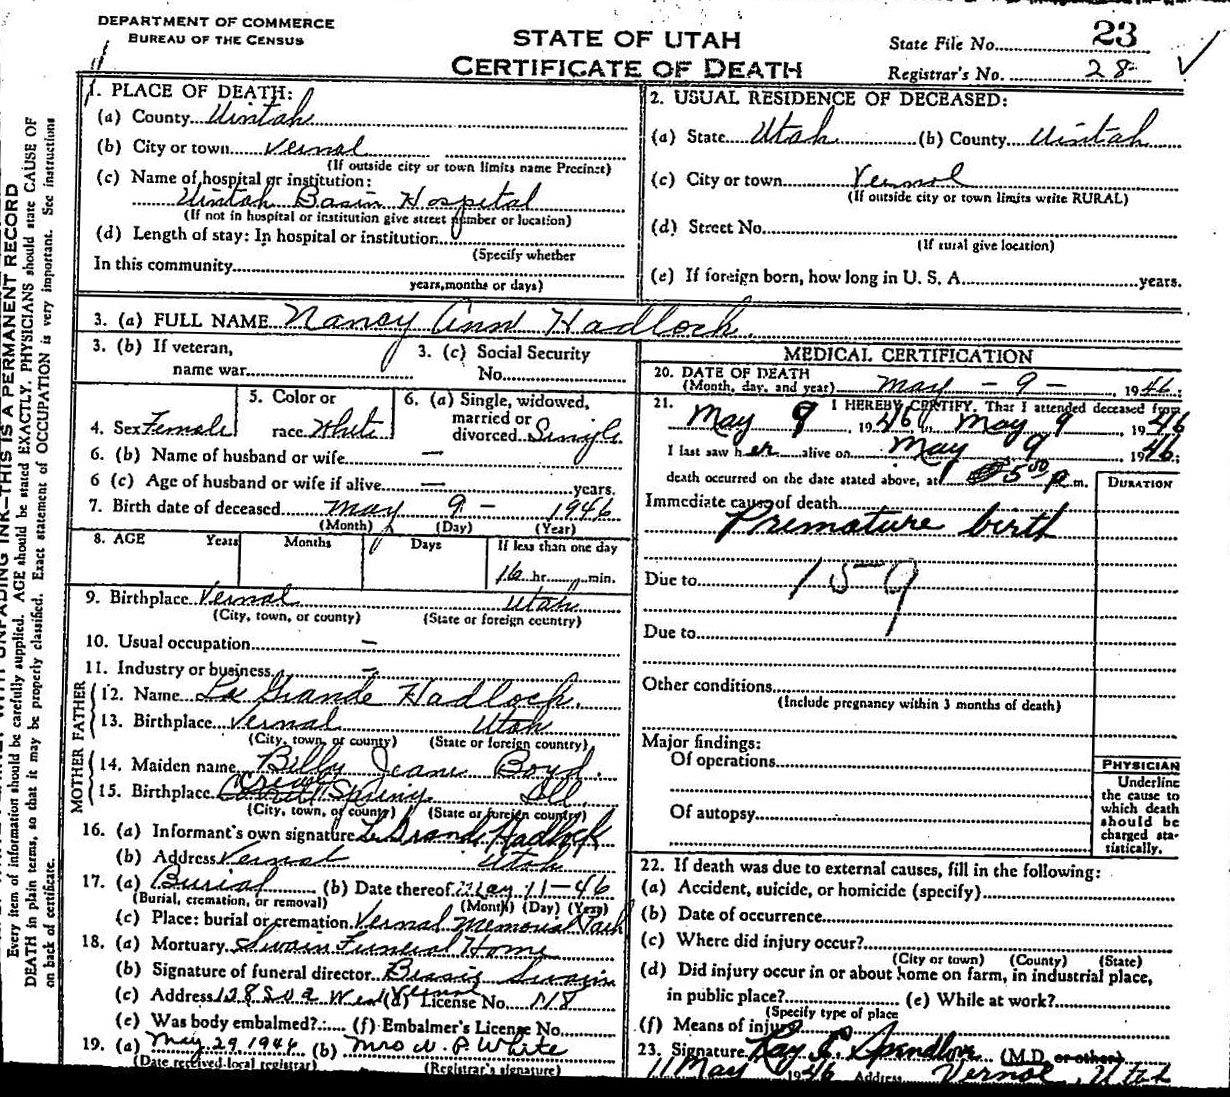 DEPARTMENT OF COMMERCE
BUREAU OF THE CENSUS
STATE OF UTAH
CERTIFICATE OF DEATH
State File No. 23
Registrar's No. 28
1. PLACE OF DEATH:
(a) County Uintah
(b) City or town Vernal
(If outside city or town limits name Precinct)
(c) Name of hospital or institution:
Uintah Basin Hospital
(If not in hospital or institution give street number or location)
(d) Length of stay: In hospital or institution
(Specify whether
In this community
years, months or days)
2. USUAL RESIDENCE OF DECEASED:
(a) State Utah (b) County Uintah
(c) City or town Vernal
(If outside city or town limits write RURAL)
(d) Street No.
(If rural give location)
(e) If foreign born, how long in U. S. A. years.
3. (a) FULL NAME Nancy Ann Hadlock
3. (b) If veteran,
name war
3. (c) Social Security
No.
4. Sex Female
5. Color or
race White
6. (a) Single, widowed,
married or
divorced Single
6. (b) Name of husband or wife —
6 (c) Age of husband or wife if alive — years.
7. Birth date of deceased May 9 - 1946
(Month) (Day) (Year)
8. AGE Years Months Days If less than one day
16 hr. min.
9. Birthplace Vernal Utah
(City, town, or county) (State or foreign country)
10. Usual occupation —
11. Industry or business —
FATHER
12. Name La Grande Hadlock
13. Birthplace Vernal Utah
(City, town, or county) (State or foreign country)
MOTHER
14. Maiden name Billy Jeane Boyd
15. Birthplace Spring Ill.
(City, town, or county) (State or foreign country)
16. (a) Informant's own signature La Grande Hadlock
(b) Address Vernal Utah
17. (a) Burial (b) Date thereof May 11-46
(Burial, cremation, or removal) (Month) (Day) (Year)
(c) Place: burial or cremation Vernal Memorial Park
18. (a) Mortuary Swain Funeral Home
(b) Signature of funeral director Bessie Swain
(c) Address 128 So 2 West Vernal (d) License No. 118
(e) Was body embalmed? (f) Embalmer's License No.
19. (a) May 29, 1946 (b) Mrs N. P. White
(Date received local registrar) (Registrar's signature)
MEDICAL CERTIFICATION
20. DATE OF DEATH
(Month, day, and year) May - 9 - 1946.
21. I HEREBY CERTIFY, That I attended deceased from
May 9 1946 May 9 1946
I last saw her alive on May 9 1946;
death occurred on the date stated above, at 5 00 P.m.
DURATION
Immediate cause of death
Premature birth
Due to 159
Due to
Other conditions
(Include pregnancy within 3 months of death)
Major findings:
Of operations
Of autopsy
PHYSICIAN
Underline
the cause to
which death
should be
charged sta-
tistically.
22. If death was due to external causes, fill in the following:
(a) Accident, suicide, or homicide (specify)
(b) Date of occurrence
(c) Where did injury occur?
(City or town) (County) (State)
(d) Did injury occur in or about home on farm, in industrial place,
in public place? (e) While at work?
(Specify type of place
(f) Means of injury
23. Signature Ray E. Spendlove (M.D. or other)
11 May 1946 Address Vernal, Utah
THIS IS A PERMANENT RECORD
Every item of information should be carefully supplied. AGE should be stated EXACTLY. PHYSICIANS should state CAUSE OF
DEATH in plain terms, so that it may be properly classified. Exact statement of OCCUPATION is very important. See instructions
on back of certificate.